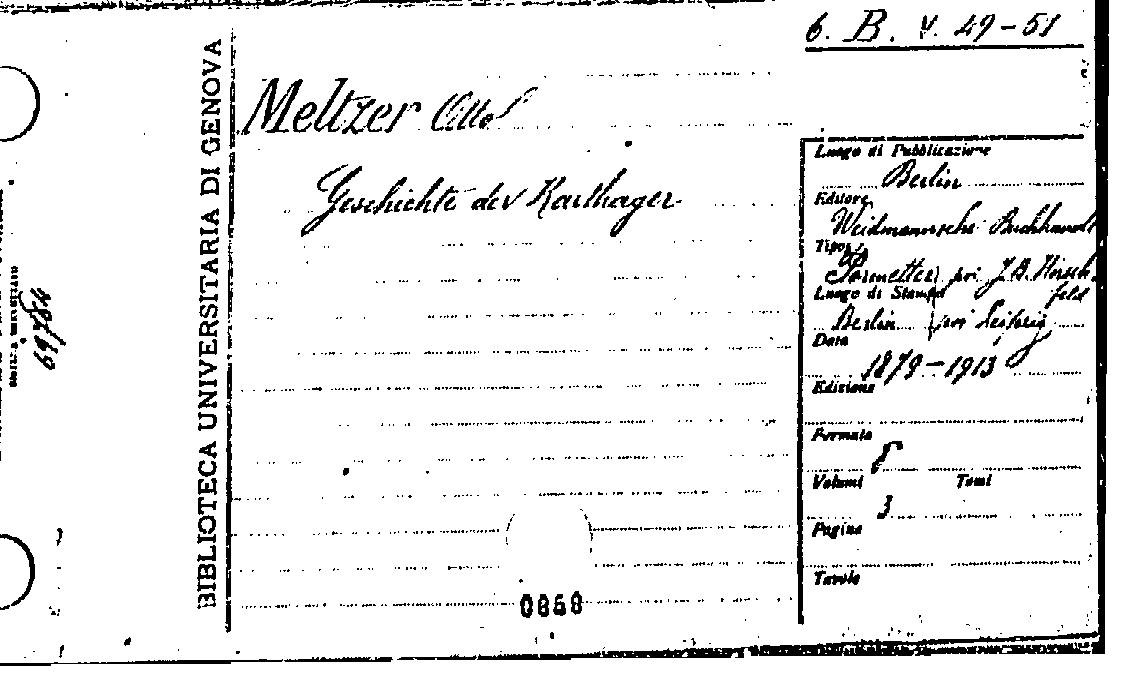 6. B. V. 49-51
BIBLIOTECA UNIVERSITARIA DI GENOVA
Meltzer Otto
Geschichte der Karthager
Luogo di Pubblicazione
Berlin
Editore
Weidmannsche Buchhandl
Tipog
poi J.B. Hirsch-
feld
Luogo di Stampa
Berlin poi Leipzig
Data
1879-1913
Edizione
Formato
8°
Volumi Tomi
3
Pagine
Tavole
69784
0868